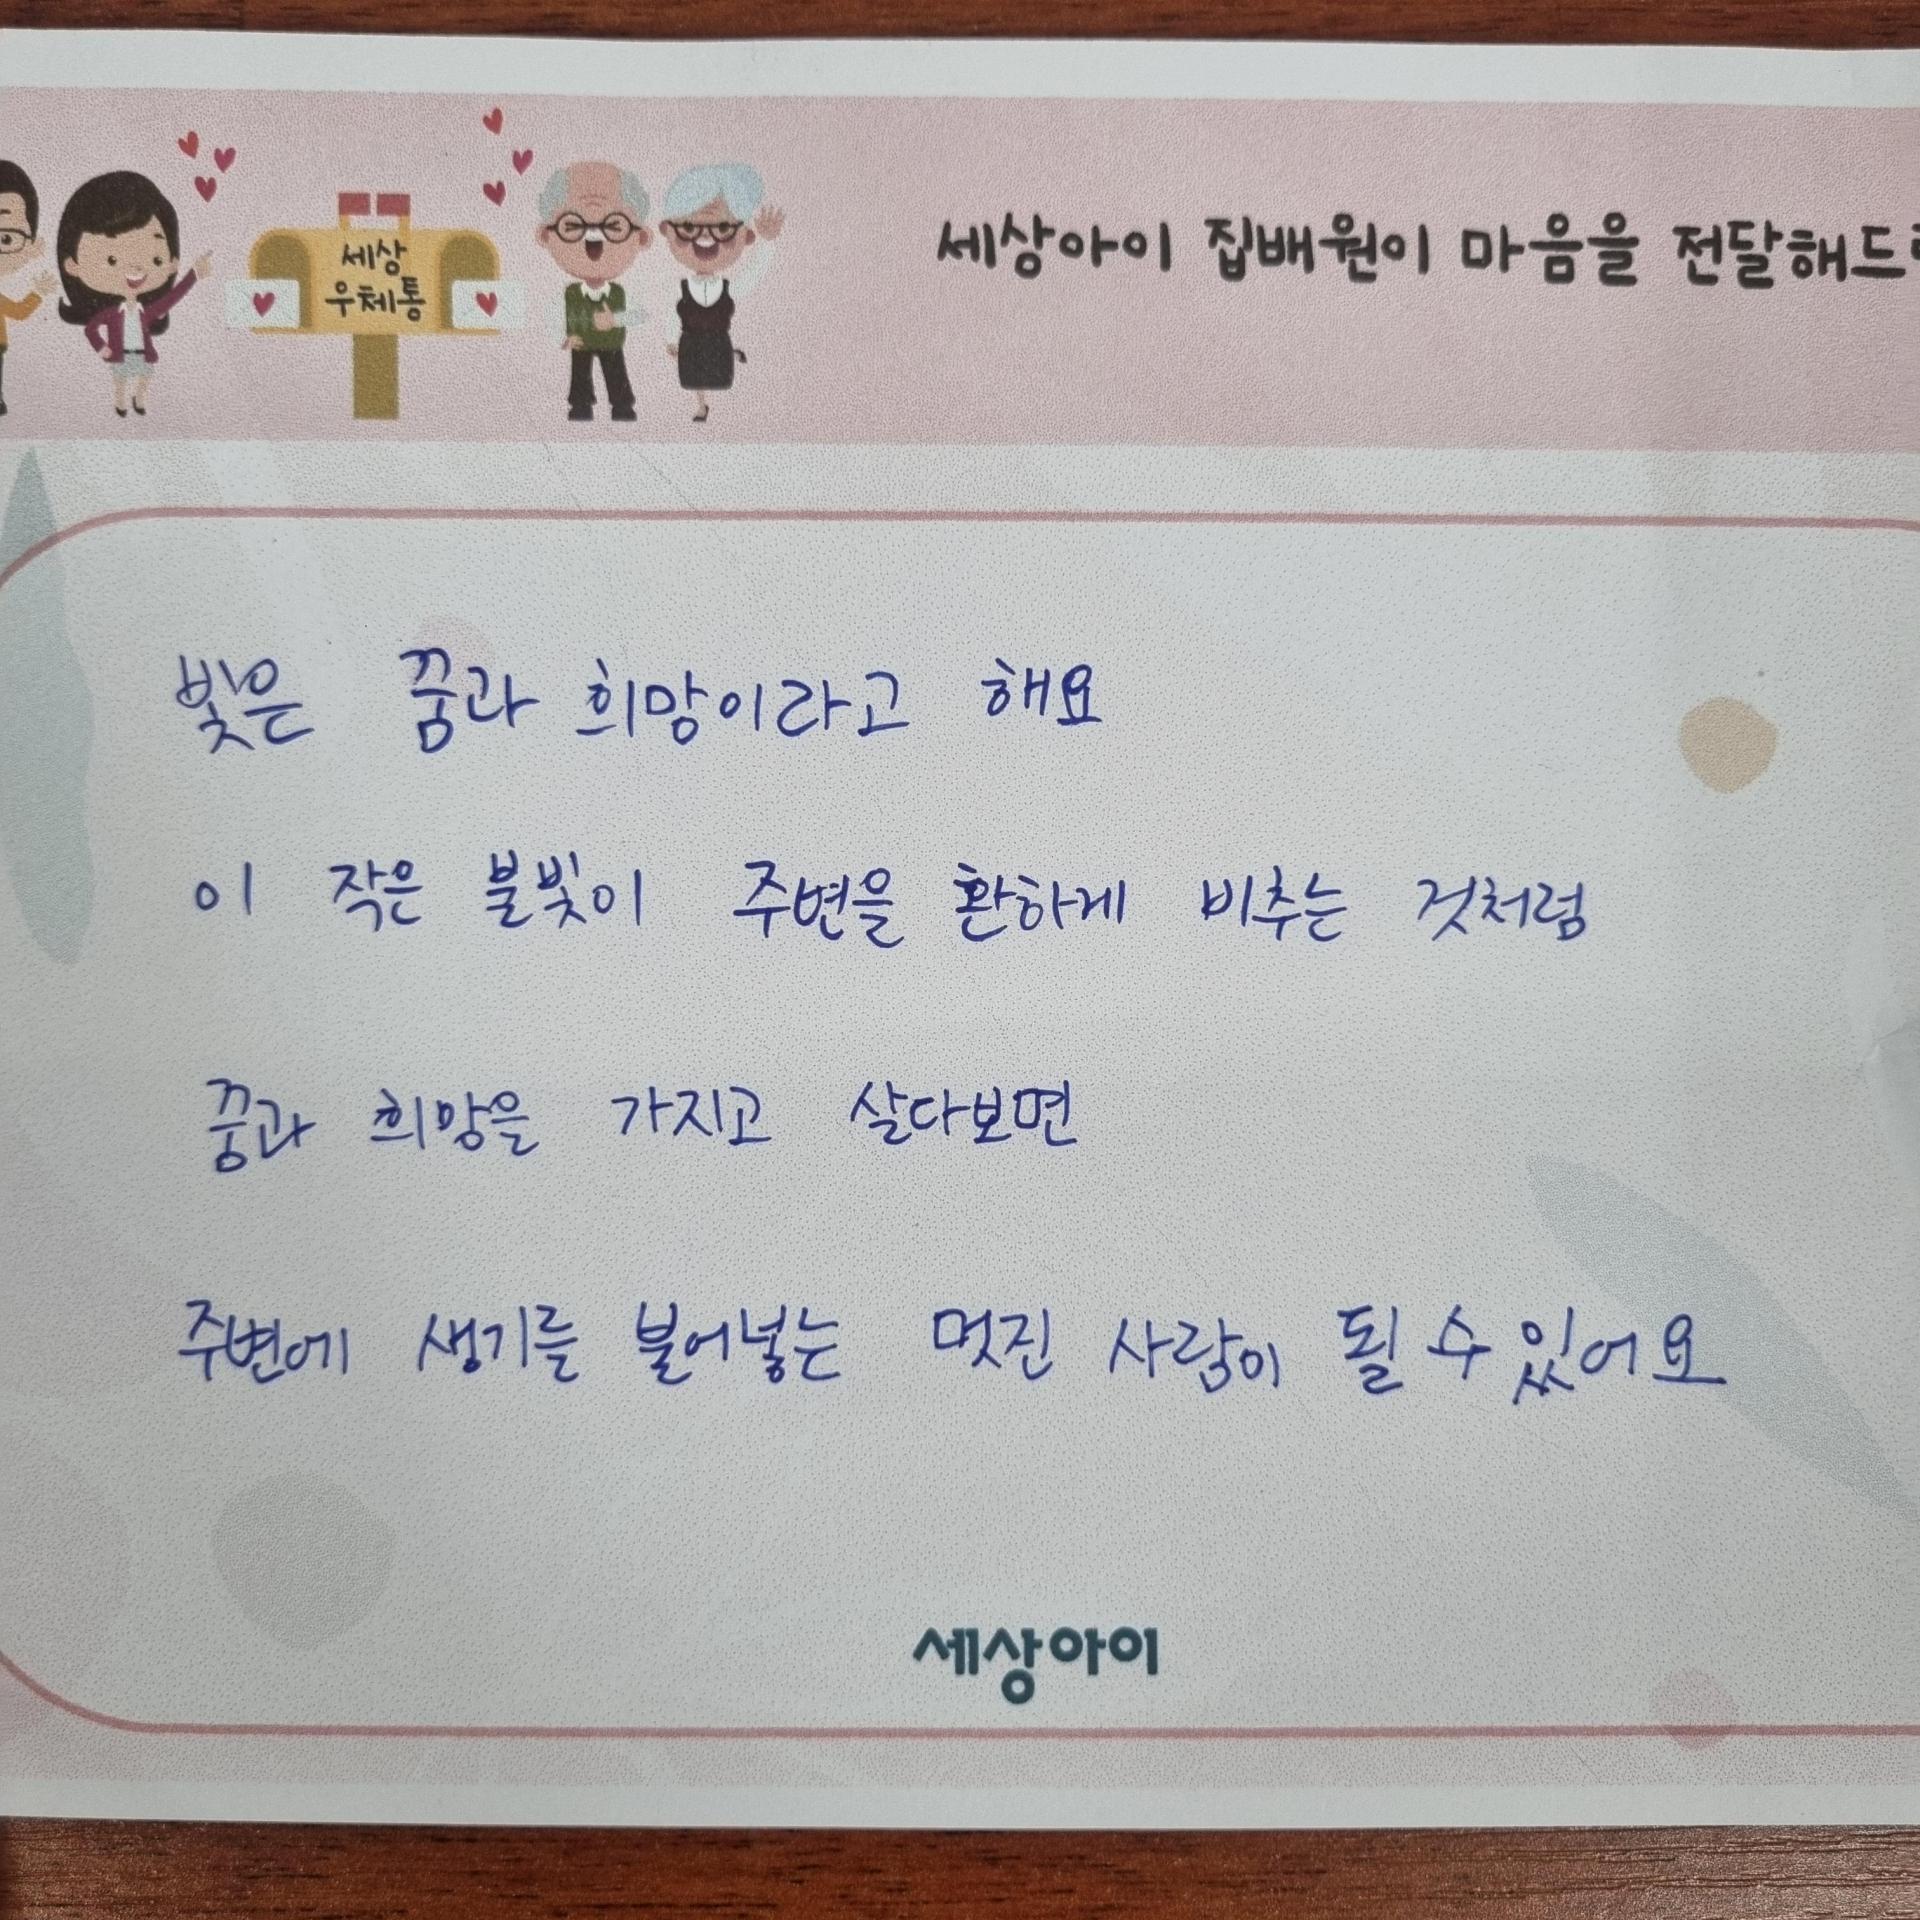 세상
우체통
세상아이 집배원이 마음을
빛은 꿈과 희망이라고 해요
이 작은 불빛이 주변을 환하게 비추는 것처럼
꿈과 희망을 가지고 살다보면
주변에 생기를 불어넣는 멋진 사람이 될 수 있어요
세상아이